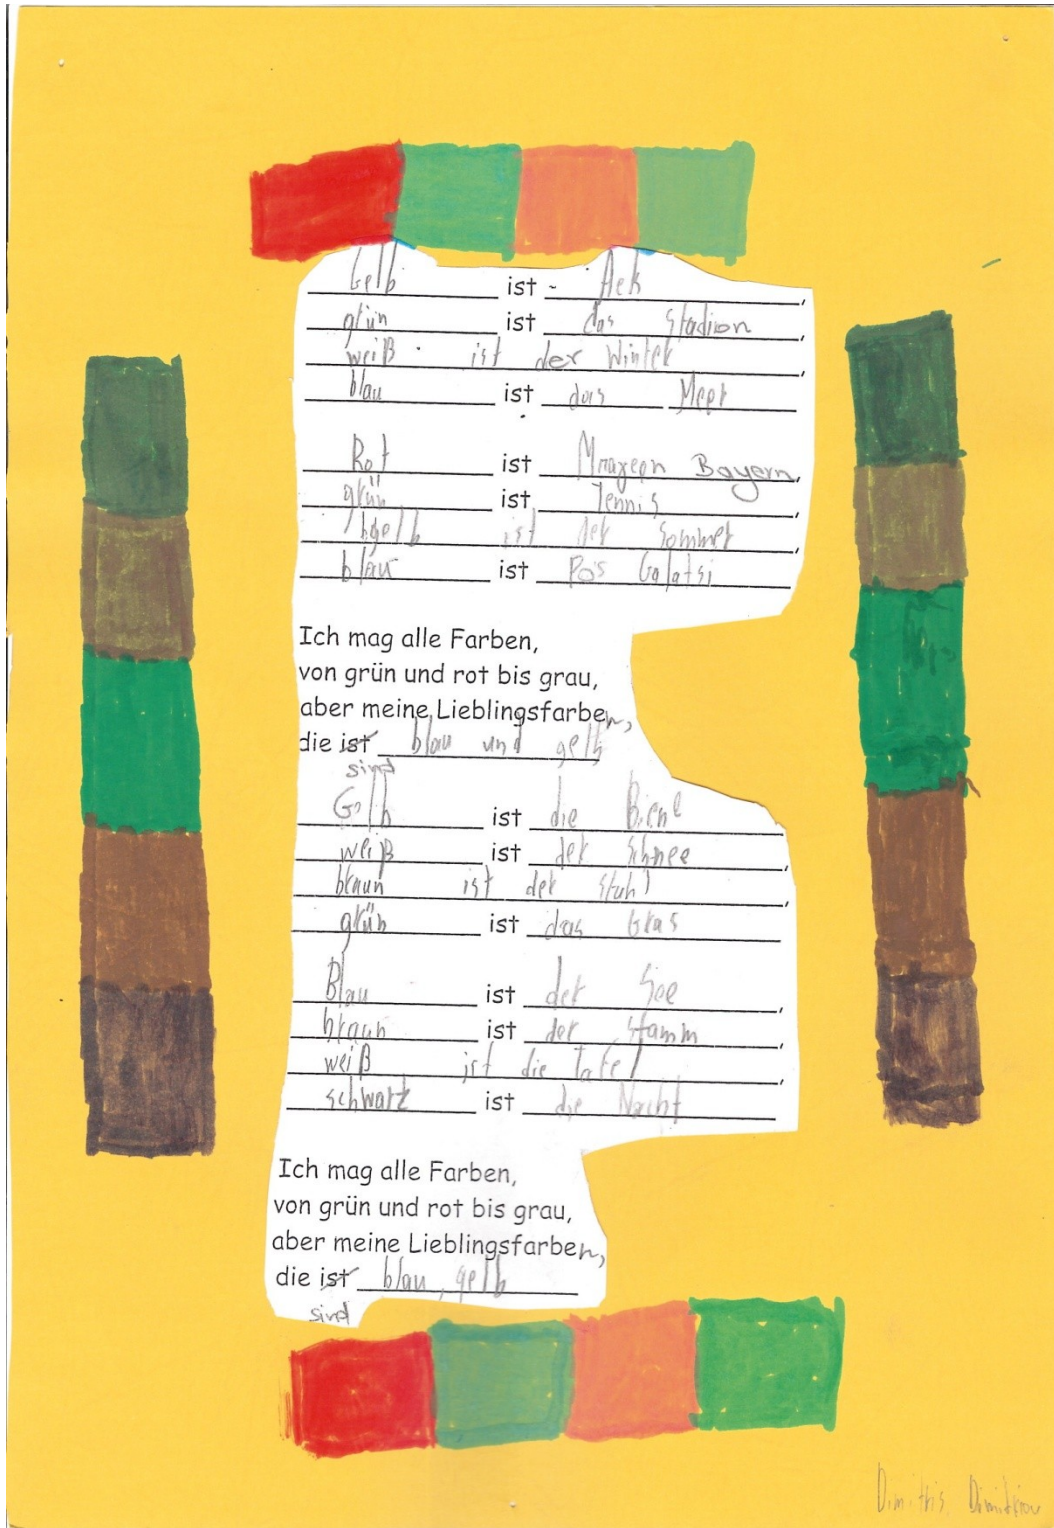 Gelb ist Aek,
grün ist das Stadion,
weiß ist der Winter,
blau ist das Meer
Rot ist Bayern,
grün ist Tennis,
gelb ist der Sommer,
blau ist Pos Galatsi
Ich mag alle Farben,
von grün und rot bis grau,
aber meine Lieblingsfarben,
die ist blau und gelb
sind
Gelb ist die Biene
weiß ist der Schnee,
braun ist der Stuhl,
grün ist das Gras
Blau ist der See,
braun ist der Stamm,
weiß ist die Tafel,
schwarz ist die Nacht
Ich mag alle Farben,
von grün und rot bis grau,
aber meine Lieblingsfarben,
die ist blau, gelb
sind
Dimitris Dimitriou